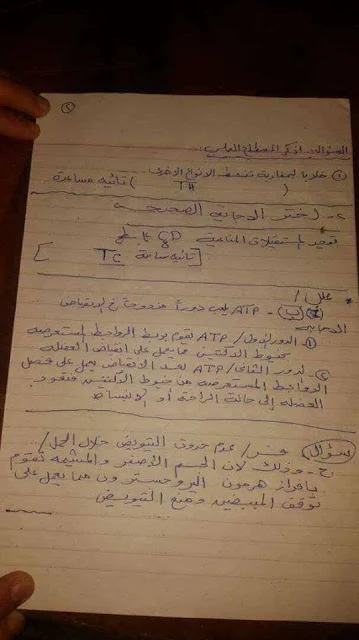 (٢)
السؤال: اذكر المصطلح العلمي:
① خلايا ليمفاوية تنشط الأنواع الأخرى
( TH ) تائية مساعدة
٢- اختر الاجابة الصحيحة
المناعية CD8
[ تائية سامة Tc ]
علل /
ATP يلعب دوراً مزدوجاً في الانقباض
① الدور الاول / ATP تقوم بربط الروابط المستعرضة
بخيوط الاكتين مما يعمل على انقباض العضلة
② الدور الثاني / ATP بعد الانقباض يعمل على فصل
الروابط المستعرضة من خيوط الاكتين فتعود
العضلة إلى حالة الراحة أو الانبساط
سؤال فسر / عدم حدوث التبويض خلال الحمل /
ج - وذلك لان الجسم الاصفر والمشيمة تقوم
بافراز هرمون البروجسترون مما يعمل على
توقف المبيضين ومنع التبويض